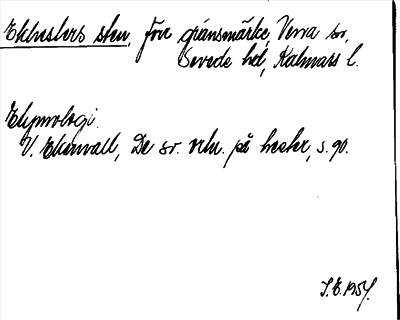 Ekhesters sten, förr gränsmärke, Vena sn,
Sevede hd, Kalmars l.
Etymologi.
V. Ekenvall, De sv. ortn. på hester, s. 90.
S.E. 1954.